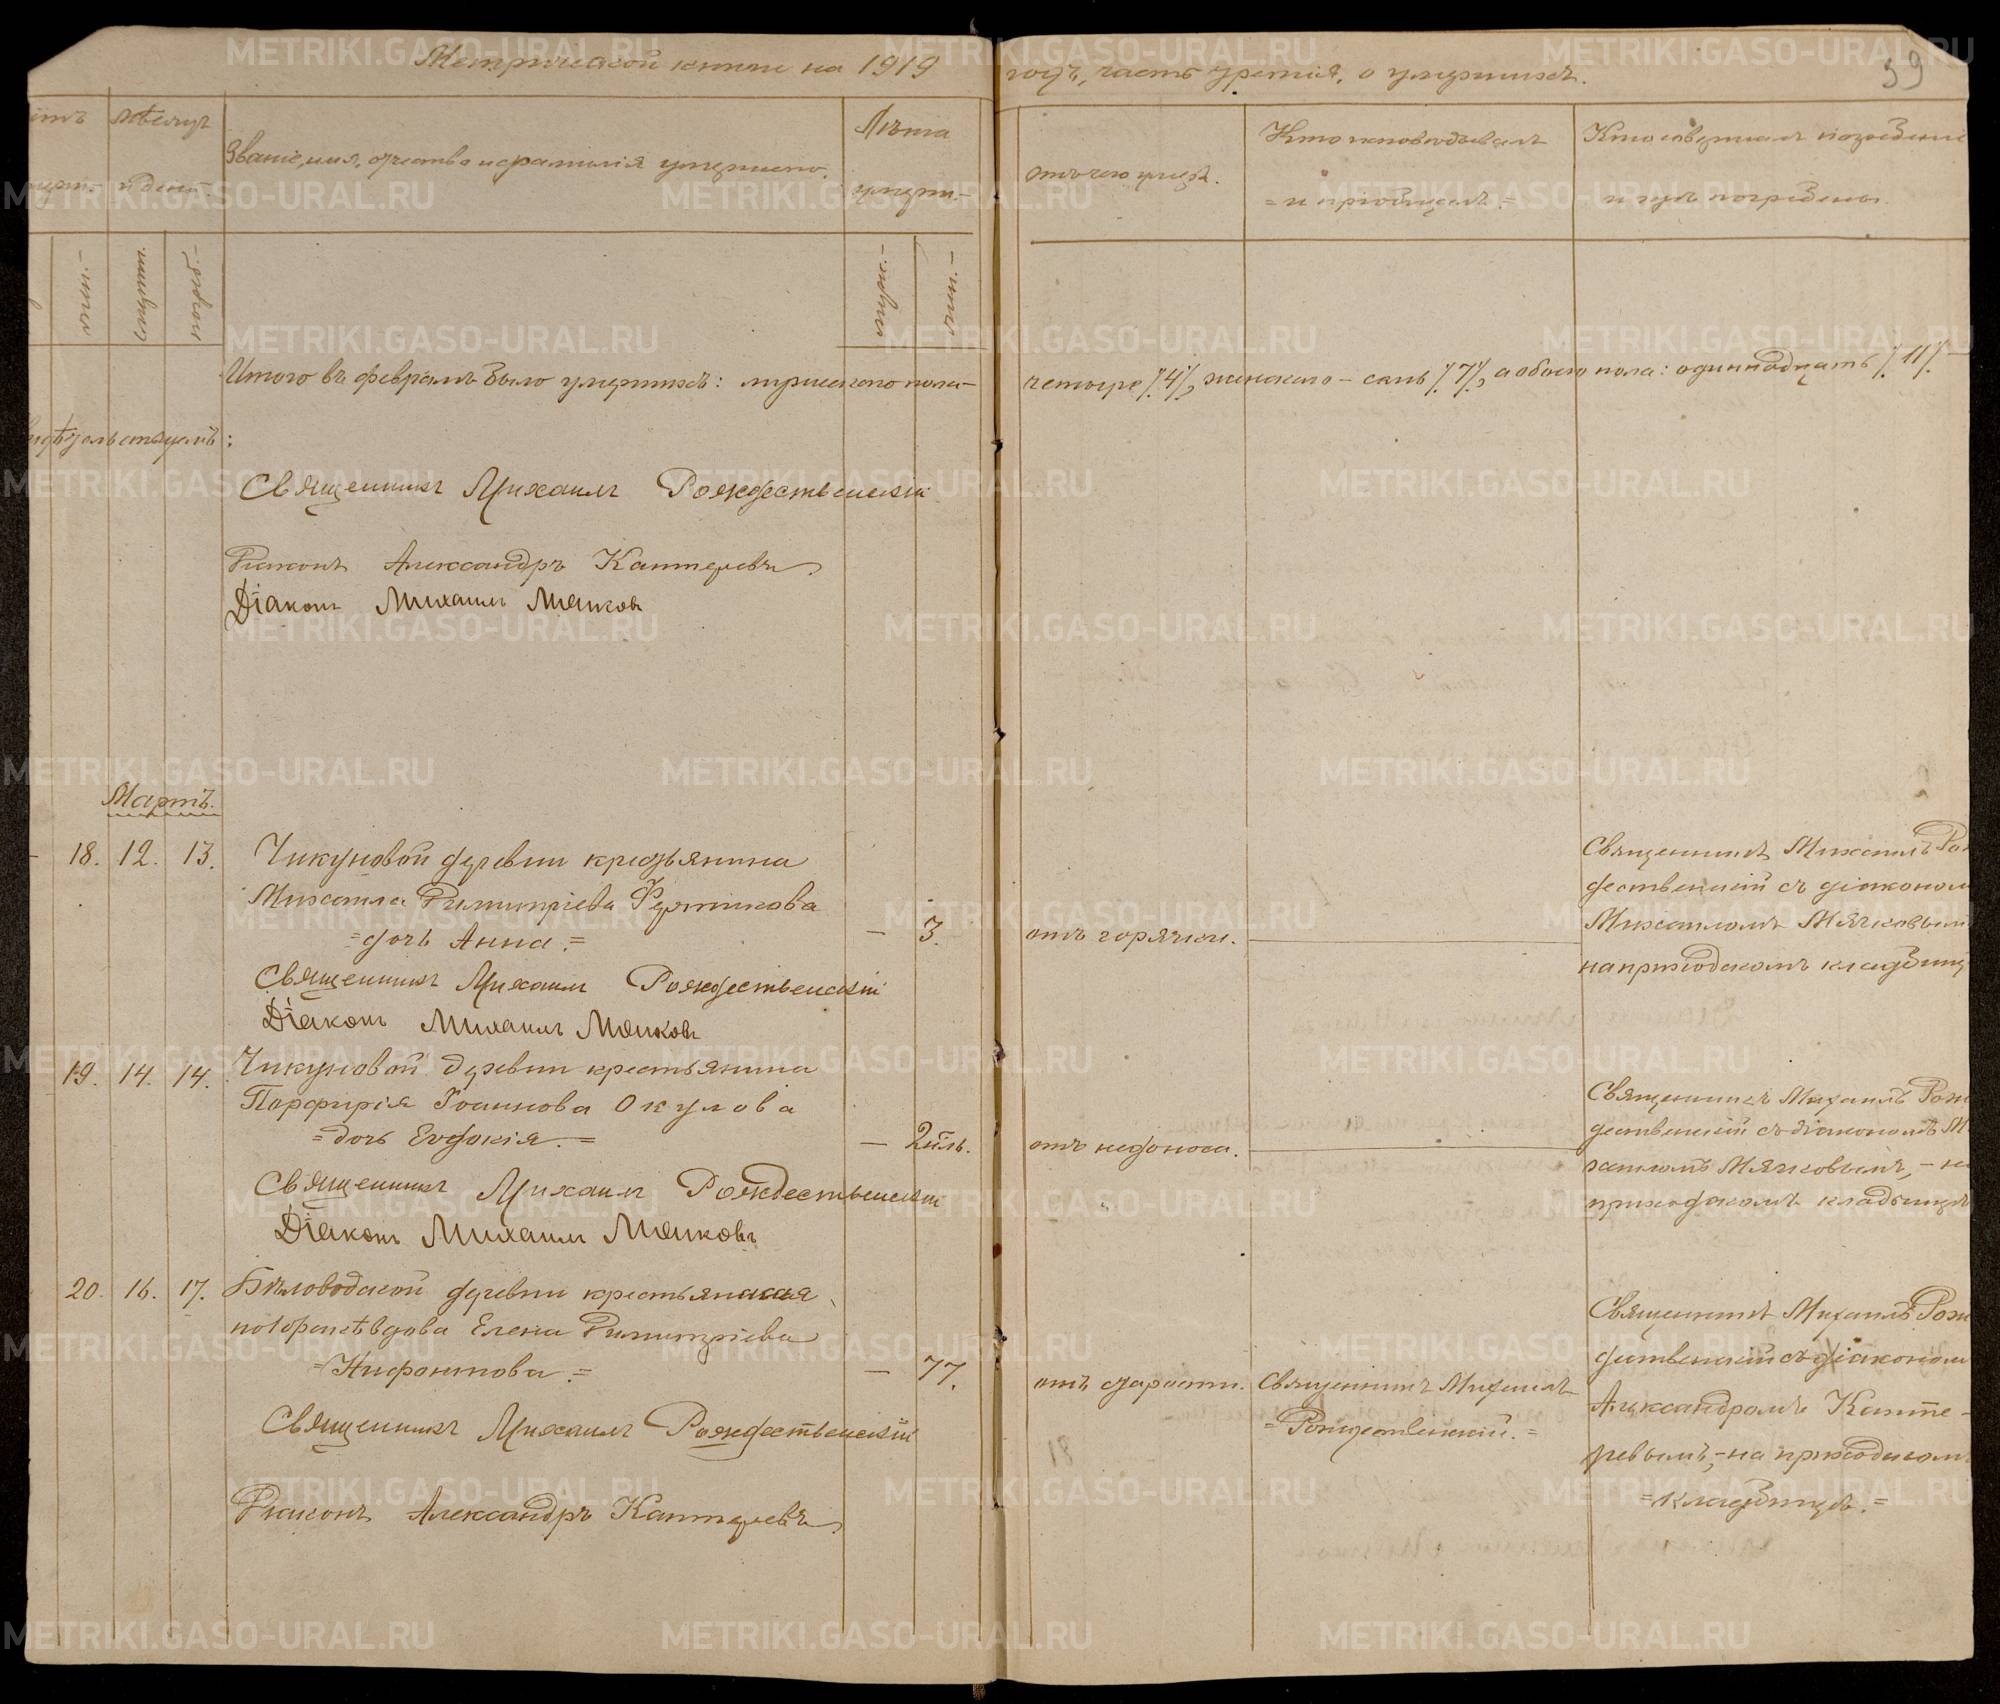 Метрической книги на 1919
годъ, часть третія, о умершихъ.
39
мѣсяцъ
и день.
Званіе, имя, отчество и фамилія умершаго.
Лѣта
умерш.-
отъ чего умеръ.
Кто исповѣдывалъ
= и пріобщалъ. =
Кто совершалъ погребеніе
и гдѣ погребены.
женск.-
смерти.
погреб.-
муж.-
жен.-
Итого въ февралѣ было умершихъ: мужескаго пола-
четыре /.4/., женскаго - семь /.7/., а обоего пола: одиннадцать /.11/.
свидѣтельствуемъ:
Священникъ Михаилъ Рождественскій
Діаконъ Александръ Каптеревъ.
Діаконъ Михаилъ Мячковъ
Мартъ.
18. 12. 13. Чикуновой деревни крестьянина
Михаила Димитріева Фертикова
=дочь Анна.= — 3. отъ горячки.
Священникъ Михаилъ Рождественскій
Діаконъ Михаилъ Мячковъ
Священникъ Михаилъ Рож
дественскій съ діакономъ
Михаиломъ Мячковымъ
на приходскомъ кладбищ
19. 14. 14. Чикуновой деревни крестьянина
Порфирія Іоаннова Окулова
=дочь Евдокія.= — 2 нѣд. отъ недоноса.
Священникъ Михаилъ Рождественскій
Діаконъ Михаилъ Мячковъ
Священникъ Михаилъ Рож
дественскій съ діакономъ М
хаиломъ Мячковымъ,- на
приходскомъ кладбищѣ
20. 16. 17. Бѣловодской деревни крестьянская
вдова Елена Димитріева
=Нифонтова.= — 77. отъ старости.
Священникъ Михаилъ
=Рождественскій.=
Священникъ Михаилъ Рождественскій
Діаконъ Александръ Каптеревъ.
Священникъ Михаилъ Рож
дественскій съ діакономъ
Александромъ Капте-
ревымъ,-на приходском
=кладбищѣ.=
METRIKI.GASO-URAL.RU